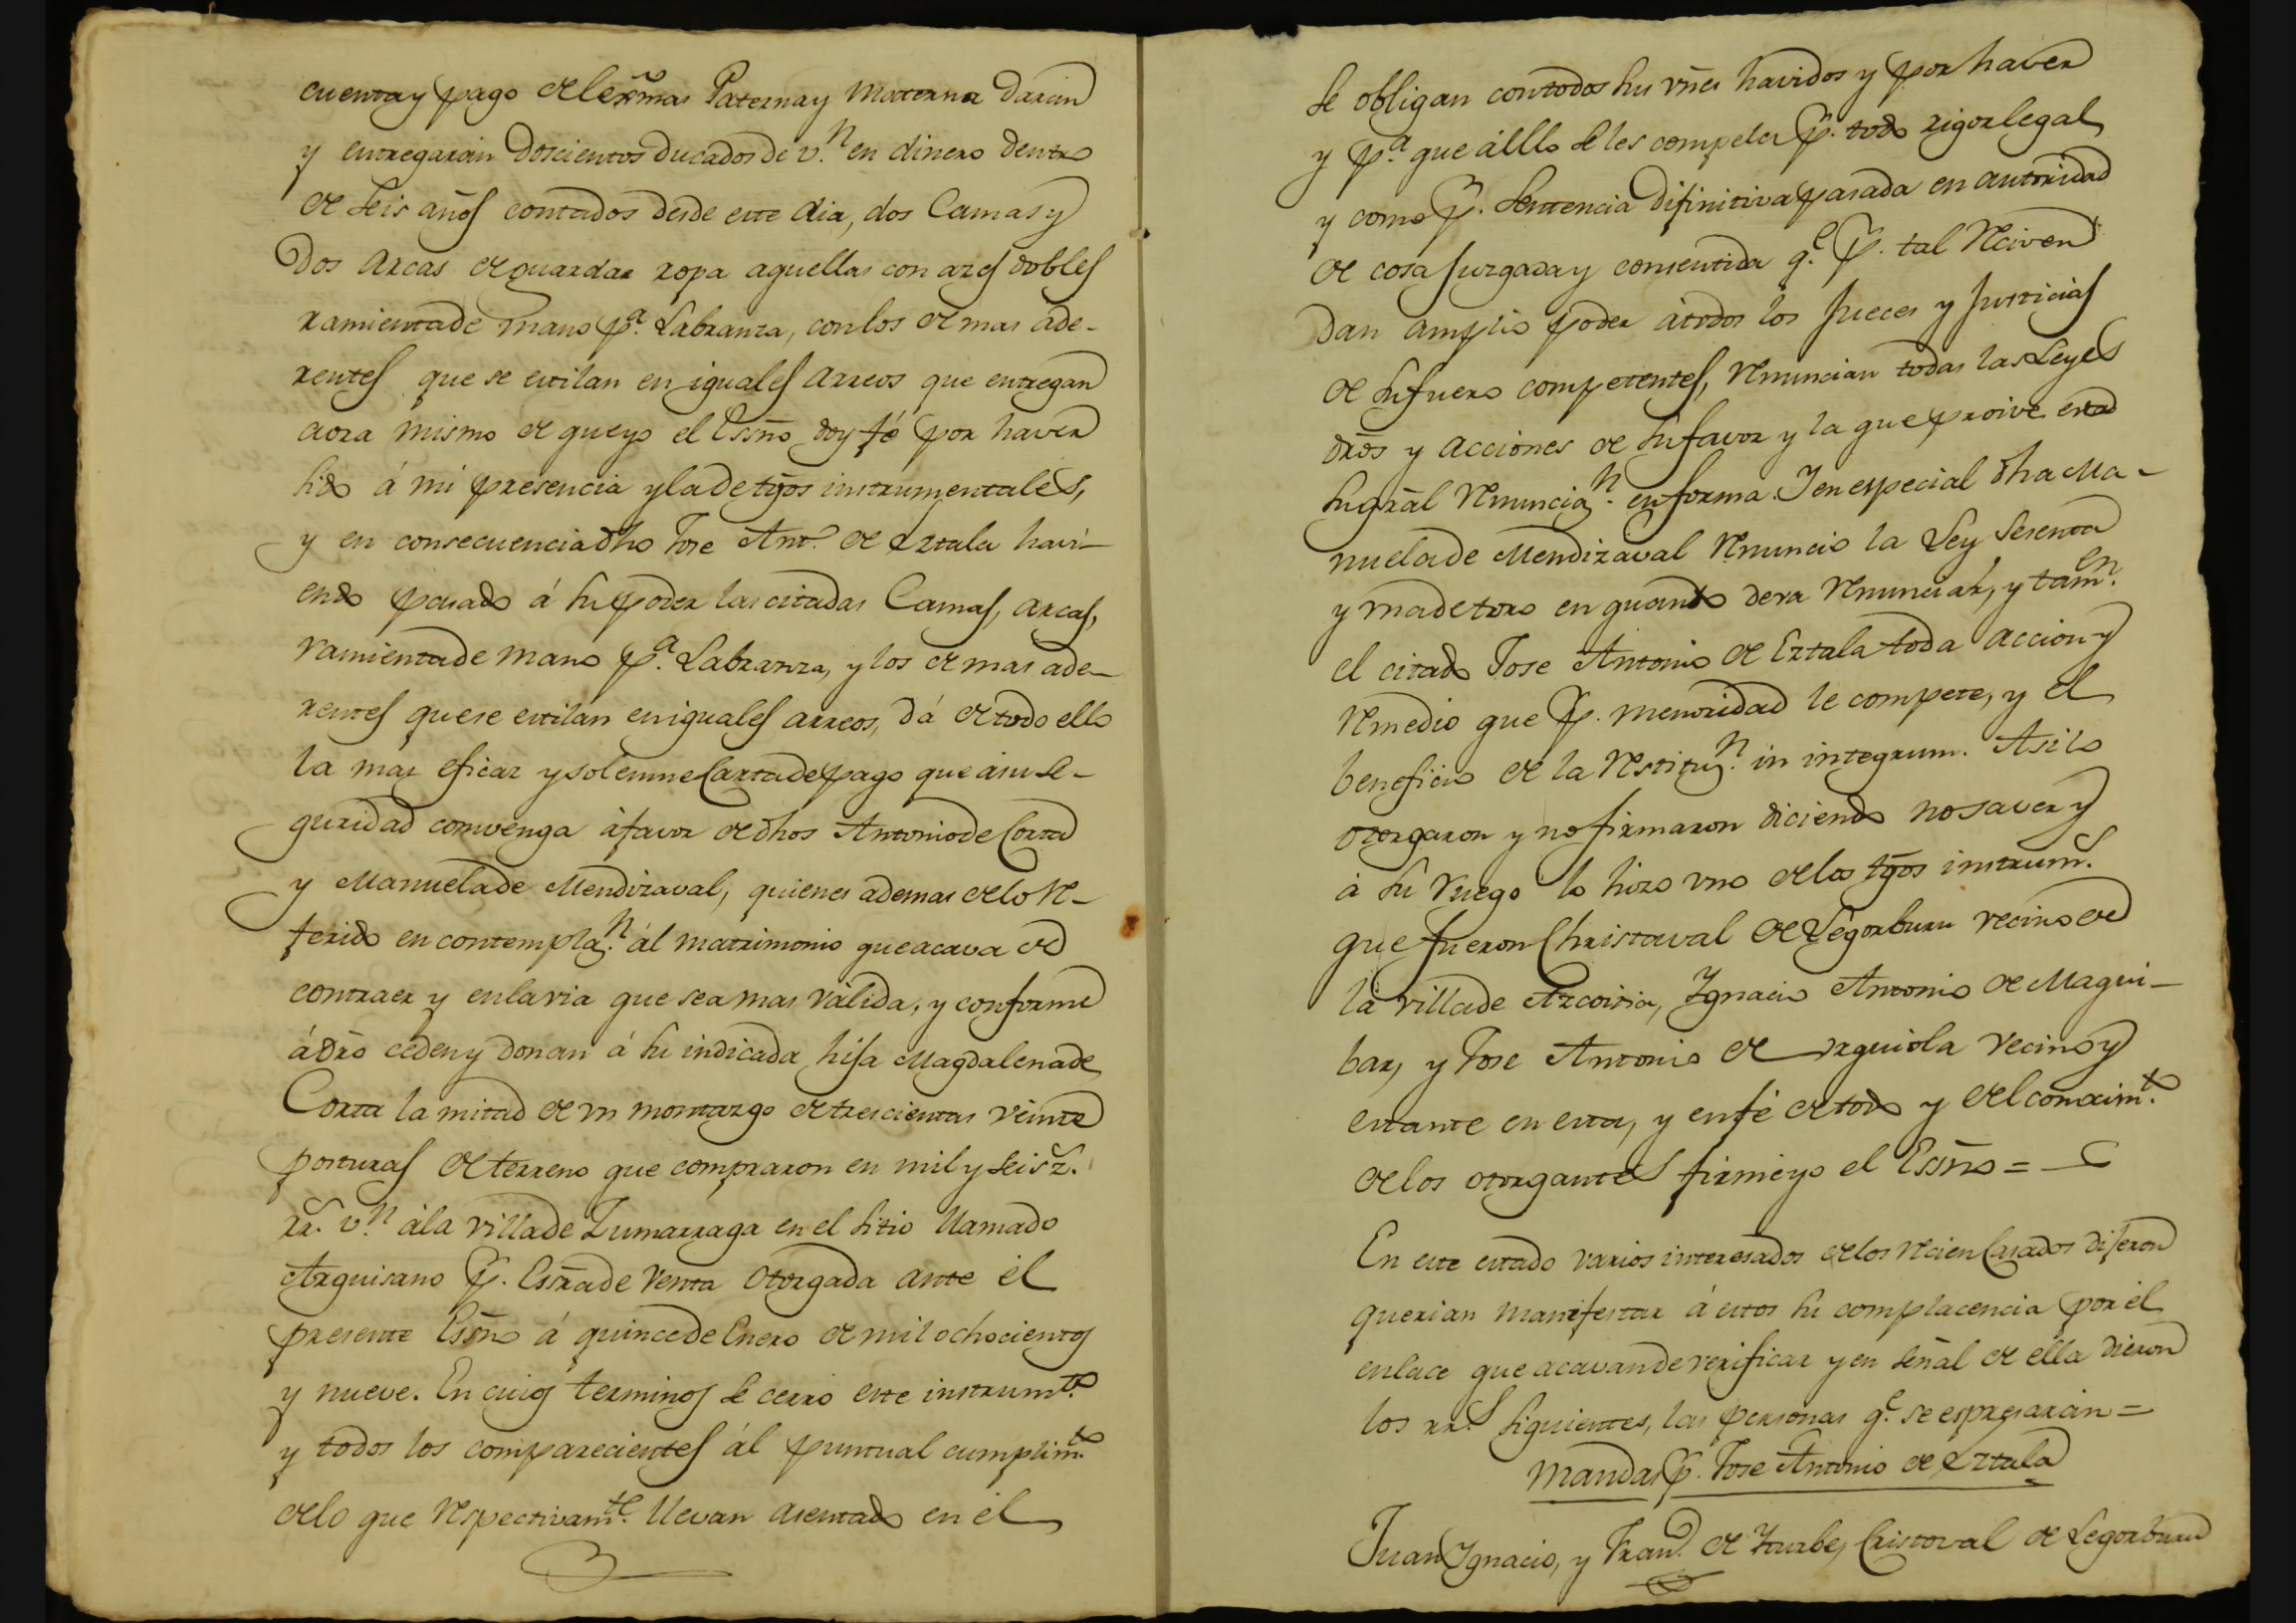 cuenta y pago de lexmas Paterna y Materna daràn
y entregaràn Doscientos Ducados de v.n en dinero dentro
de seis años contados desde este dia, dos Camas y
Dos Arcas de guardar ropa aquellas con azes dobles
ramienta de mano p.a Labranza, con los demas ade-
rentes que se estilan en iguales Arreos que entregan
aora mismo de que yo el Essno doy fé por haver
sido á mi presencia y la de tgos instrumentales,
y en consecuencia dho Jose Ant.o de Eztala havi-
endo pasado á su poder las citadas Camas, arcas,
ramienta de mano p.a Labranza, y los demas ade-
rentes que se estilan en iguales arreos, dá de todo ello
la mas eficaz y solemne Carta de pago que á su se-
guridad convenga á favor de dhos Antonio de Corta
y Manuela de Mendizaval, quienes ademas de lo re-
ferido en contempla.n ál matrimonio que acava de
contraer y en la via que sea mas válida, y conforme
á dro ceden y donan á su indicada hija Magdalena de
Corta la mitad de un montazgo de trescientas veinte
posturas de terreno que compraron en mil y seis z.
rr.s v.n á la villa de Zumarraga en el sitio llamado
Arguisano p. Essra de Venta Otorgada ante él
presente Essno á quince de Enero de mil ochocientos
y nueve. En cuios terminos se cerro este instrum.to
y todos los comparecientes ál puntual cumplim.to
de lo que respectivam.te llevan asentado en él
se obligan con todos sus vnes havidos y por haver
y p.a que á ello se les compela p. todo rigor legal
y como p. Sentencia difinitiva pasada en autoridad
de cosa Juzgada y consentida q.e p. tal reciven
dan amplio poder á todos los Jueces y Justicias
de su fuero competentes, renuncian todas las Leyes
dros y acciones de su favor y la que proive esta
su gral renuncia.n en forma. Y en especial dha Ma-
nuela de Mendizaval renuncio la Ley sesenta
y una de toro en quanto deva renunciar, y tam.en
el citado Jose Antonio de Eztala toda accion y
remedio que p. menoridad le compete, y el
beneficio de la restitu.n in integrum. Asi lo
otorgaron y no firmaron diciendo no saver y
á su ruego lo hizo vno de los tgos instrum.s
que fueron Christoval de Legorburu vecino de
la villa de Azcoitia, Ygnacio Antonio de Magui-
bar, y Jose Antonio de Urguiola vecino y
estante en esta, y en fé de todo y del conocim.to
de los otorgantes firmé yo el Essno =
En este estado varios interesados de los recien Casados dijeron
querian manifestar á estos su complacencia por él
enlace que acavan de verificar y en señal de ella dieron
los rr.s siguientes, las personas q.e se espresarán =
Mandas p. Jose Antonio de Eztala
Juan Ygnacio, y Fran.co de Yturbe, Cristoval de Legorburu